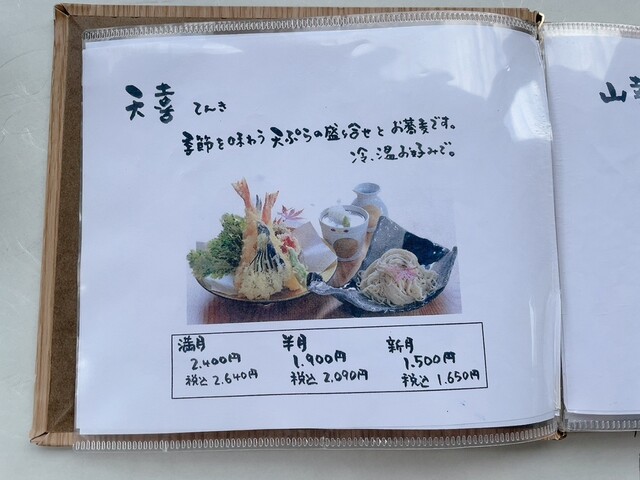 天喜 てんき
季節を味わう天ぷらの盛り合せとお蕎麦です。
冷、温お好みで。
満月 半月 新月
2.400円 1.900円 1.500円
税込 2.640円 税込 2.090円 税込 1.650円
山